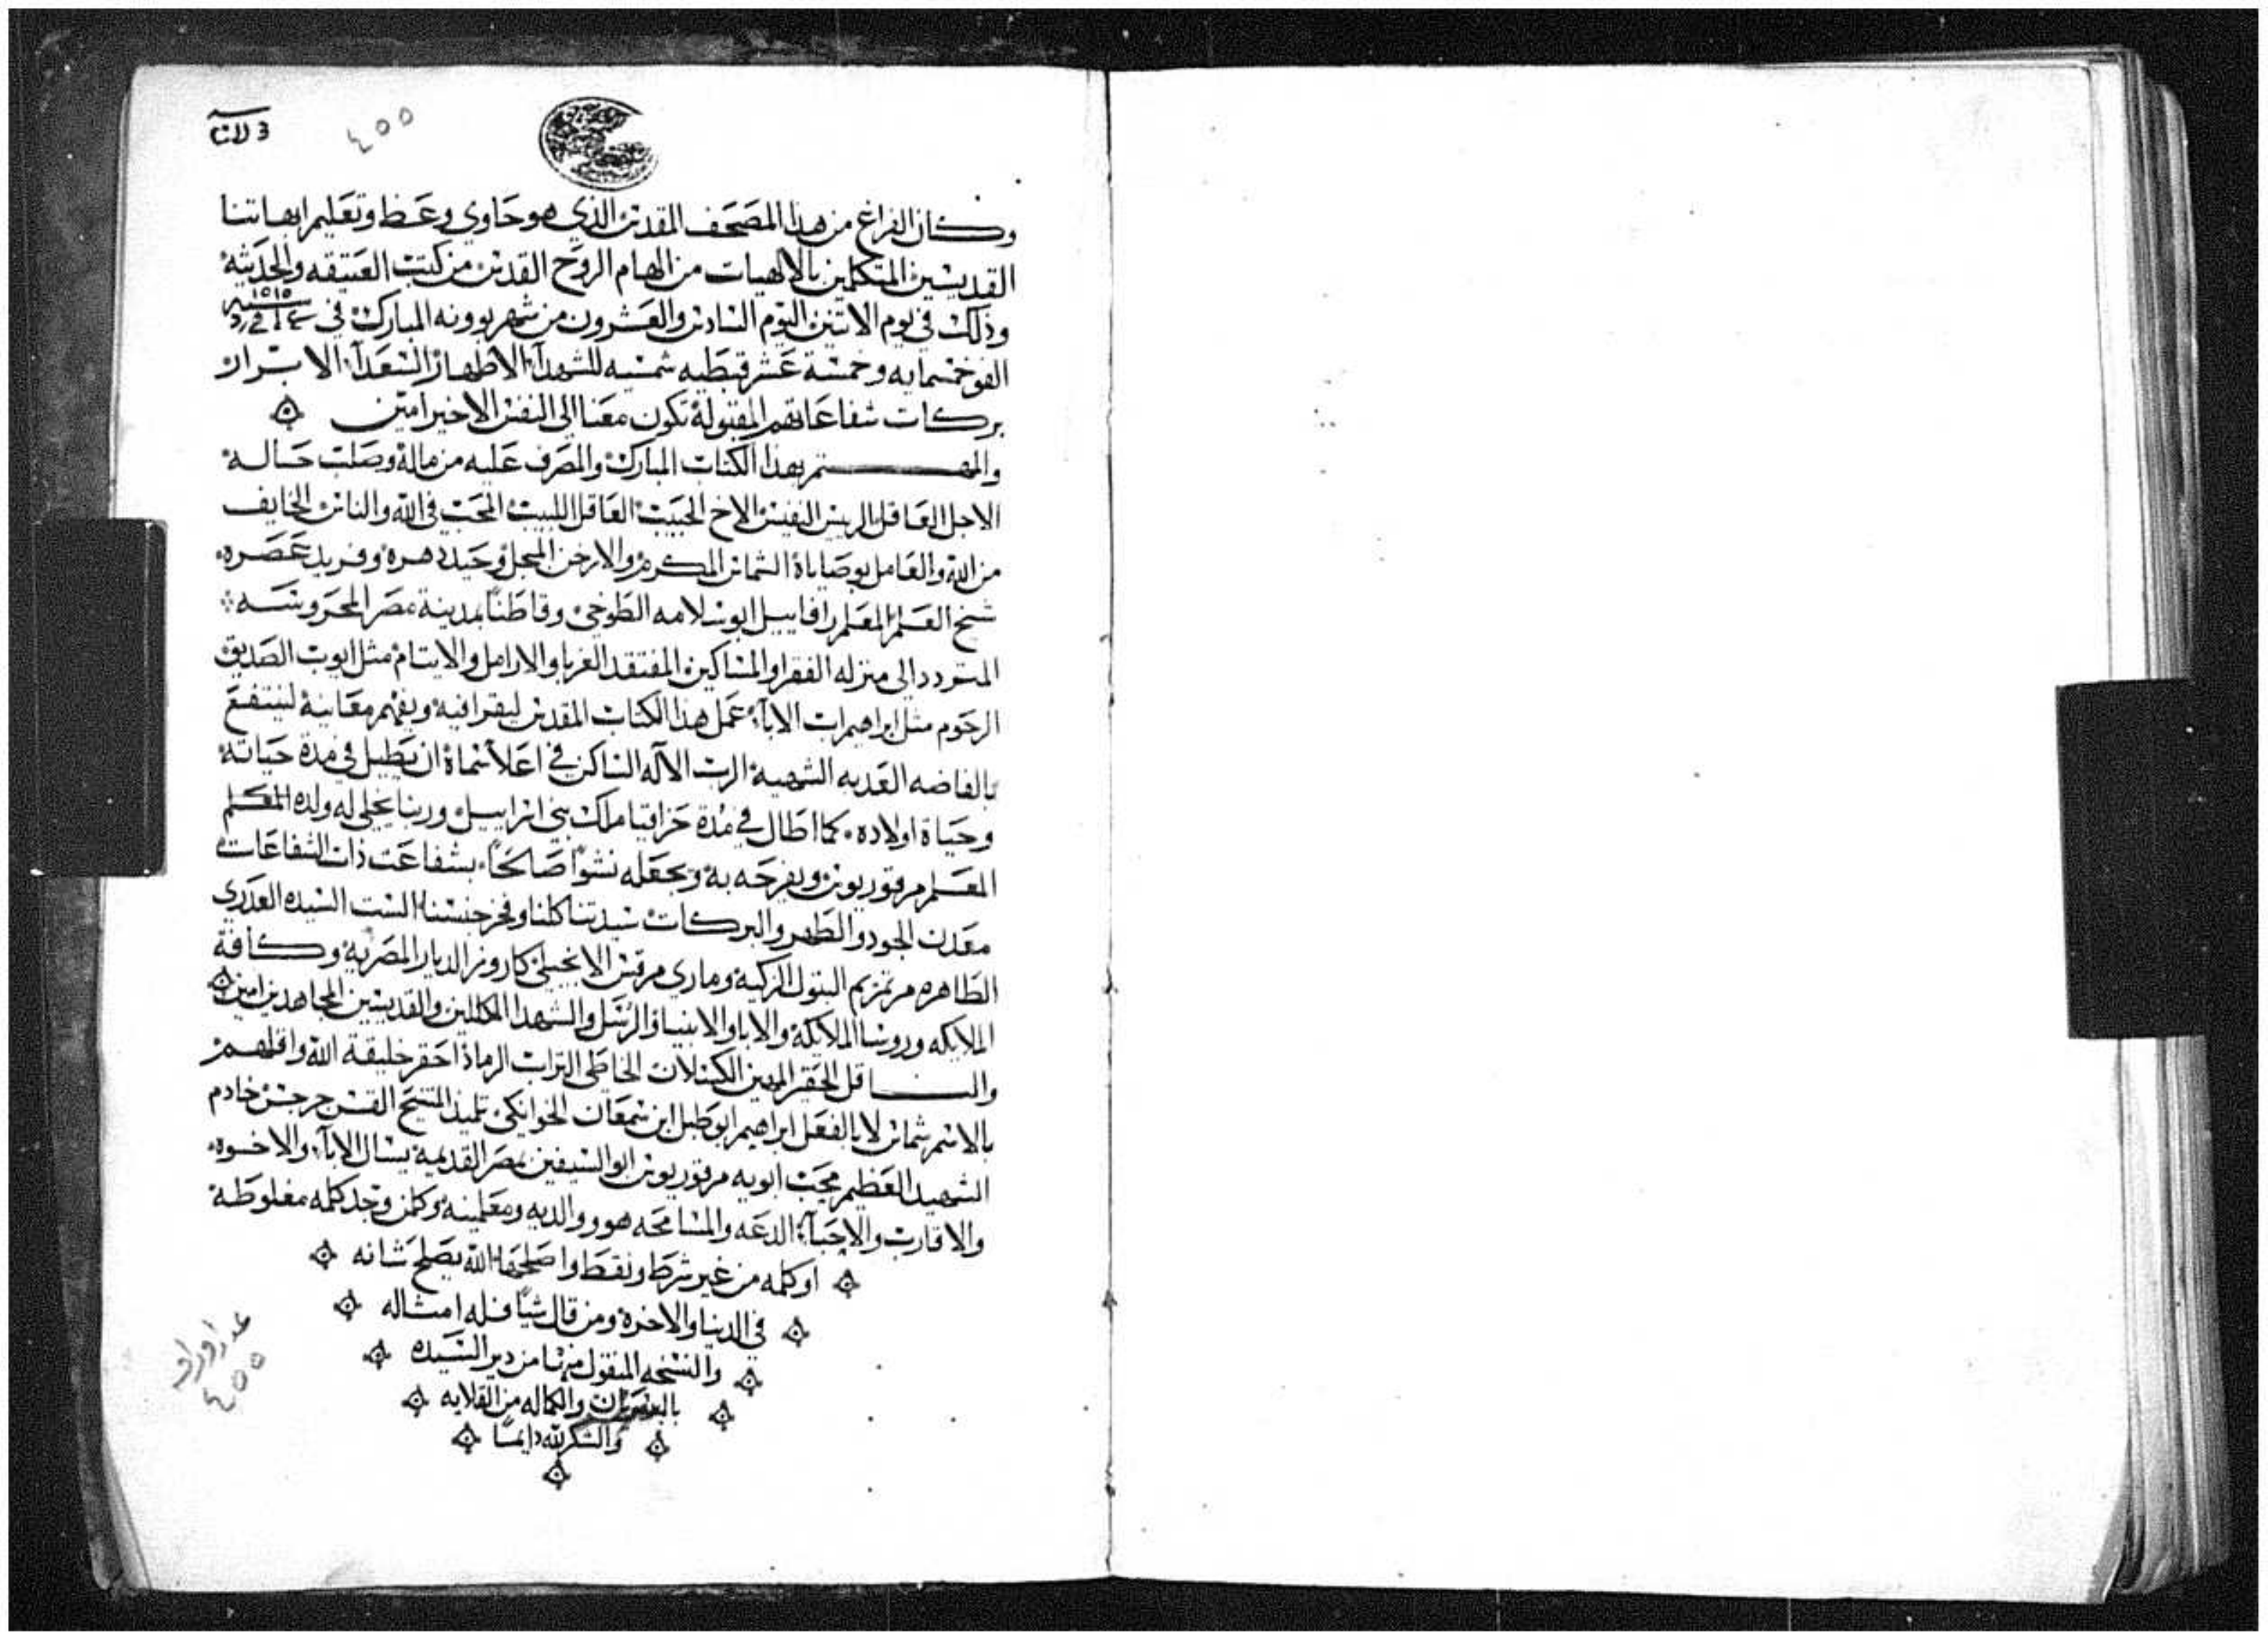 ٤٥٥
وكان الفراغ من هذا المصحف المقدس الذي هو حاوي وعظ وتعليم ابهاتنا
القديسين المتكلمين بالالهيات من الهام الروح القدس من كتب العتيقه والحديثه
وذلك في يوم الاتنين اليوم السادس والعشرون من شهر بوونه المبارك في سنة ١٥١٥
الف وخمسمايه وخمسة عشر قبطيه شمسيه للشهدآ الاطهار السعدآ الابرار
بركات شفاعاتهم المقبولة تكون معنا الي النفس الاخير امين
والمهتم بهذا الكتاب المبارك والمصرف عليه من ماله وصلب حاله
الاجل العاقل الريس النفيس الاخ الحبيب العاقل اللبيب المحب في الله والناس الخايف
من الله والعامل بوصاياه الشماس المكرم والارخن المبجل وحيد دهره وفريد عصره
شخ العلم المعلم رافاييل ابو سلامه الطوخي وقاطنًا بمدينة مصر المحروسه
المتردد الي منزله الفقرا والمساكين المفتقد الغربا والارامل والايتام مثل ايوب الصديق
الرحوم مثل ابراهيم اب الابآ عمل هذا الكتاب المقدس ليقرا فيه ويفهم معانيه لينتفع
بالفاضه العدبه الشهية الرب الآله الساكن في اعلا سماه ان يطيل في مدة حياته
وحياة اولاده كما اطال في مدة حزاقيا ملك بني اسراييل وربنا يخلي له ولده المكلم
المعلم مرقوريوس ويفرحه به ويجعله نشوًا صالحًا بشفاعت ذات الشفاعات
معدن الجود والطهر والبركات سيدتنا كلنا وفخر جنسنا الست السيده العدري
الطاهره مرتمريم البتول الزكية وماري مرقس الانجيلي كاروز الديار المصرية وكافة
الملايكه وروسا الملايكة والابا والانبيا والرسل والشهدا المكللين والقديسين المجاهدين امين
والناقل الحقير المهين الكسلان الخاطي التراب الرماد احقر خليقة الله واقلهم
بالاسم شماس لا بالفعل ابراهيم ابو طبل ابن سمعان الخوانكي تلميذ المتنيح القس جرجس خادم
الشهيد العظيم محب ابويه مرقوريوس ابو السيفين بمصر القديمة يسال الابآ والاخوه
والاقارب والاحبآ الدعه والمسامحه هو ووالديه ومعلمينه وكلمن وجد كلمه مغلوطة
اوكلمه من غير شرط ونقط واصلحها الله يصلح شانه
في الدنيا والاخرة ومن قال شيًا فله امثاله
والنسخه المنقول منها من دير السيده
بالسريان والكماله من القلايه
والشكر لله دايمًا
عدد اوراقه
٤٥٥